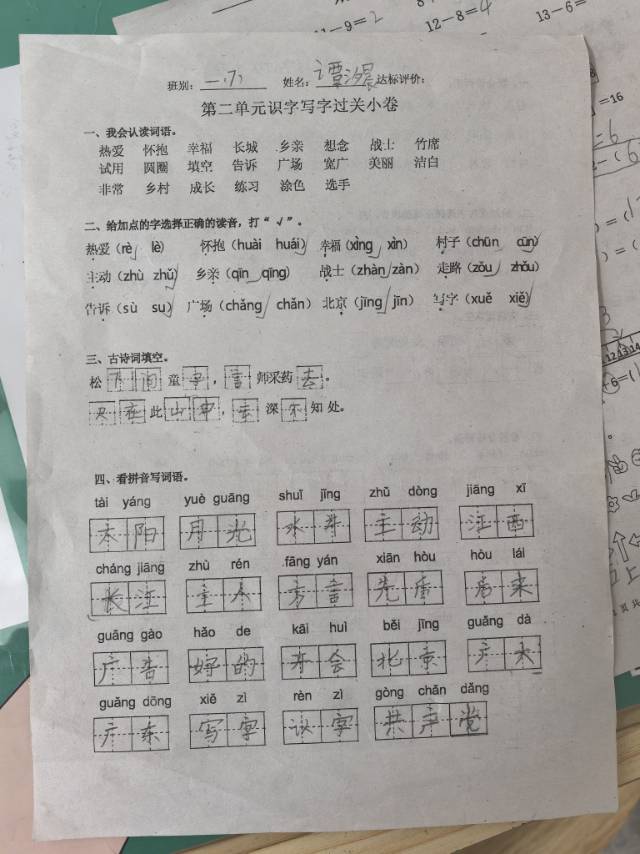 11-9=2
12-8=4
13-6=
=16
班别：一.(7) 姓名：谭汐晨 达标评价：
第二单元识字写字过关小卷
一、我会认读词语。
热爱 怀抱 幸福 长城 乡亲 想念 战士 竹席
试用 圆圈 填空 告诉 广场 宽广 美丽 洁白
非常 乡村 成长 练习 涂色 选手
二、给加点的字选择正确的读音，打“√”。
热爱（rè√ lè） 怀抱（huài huái√） 幸福（xìng√ xìn） 村子（chūn cūn√）
主动（zhù zhǔ√） 乡亲（qīn√ qīng） 战士（zhàn√ zàn） 走路（zǒu√ zhǒu）
告诉（sù su√） 广场（chǎng√ chǎn） 北京（jīng√ jīn） 写字（xuě xiě√）
三、古诗词填空。
松下问童子，言师采药去。
只在此山中，云深不知处。
四、看拼音写词语。
tài yáng yuè guāng shuǐ jǐng zhǔ dòng jiāng xī
太阳 月光 水井 主动 江西
cháng jiāng zhǔ rén fāng yán xiān hòu hòu lái
长江 主人 方言 先后 后来
guǎng gào hǎo de kāi huì běi jīng guǎng dà
广告 好的 开会 北京 广大
guǎng dōng xiě zì rèn zì gòng chǎn dǎng
广东 写字 认字 共产党